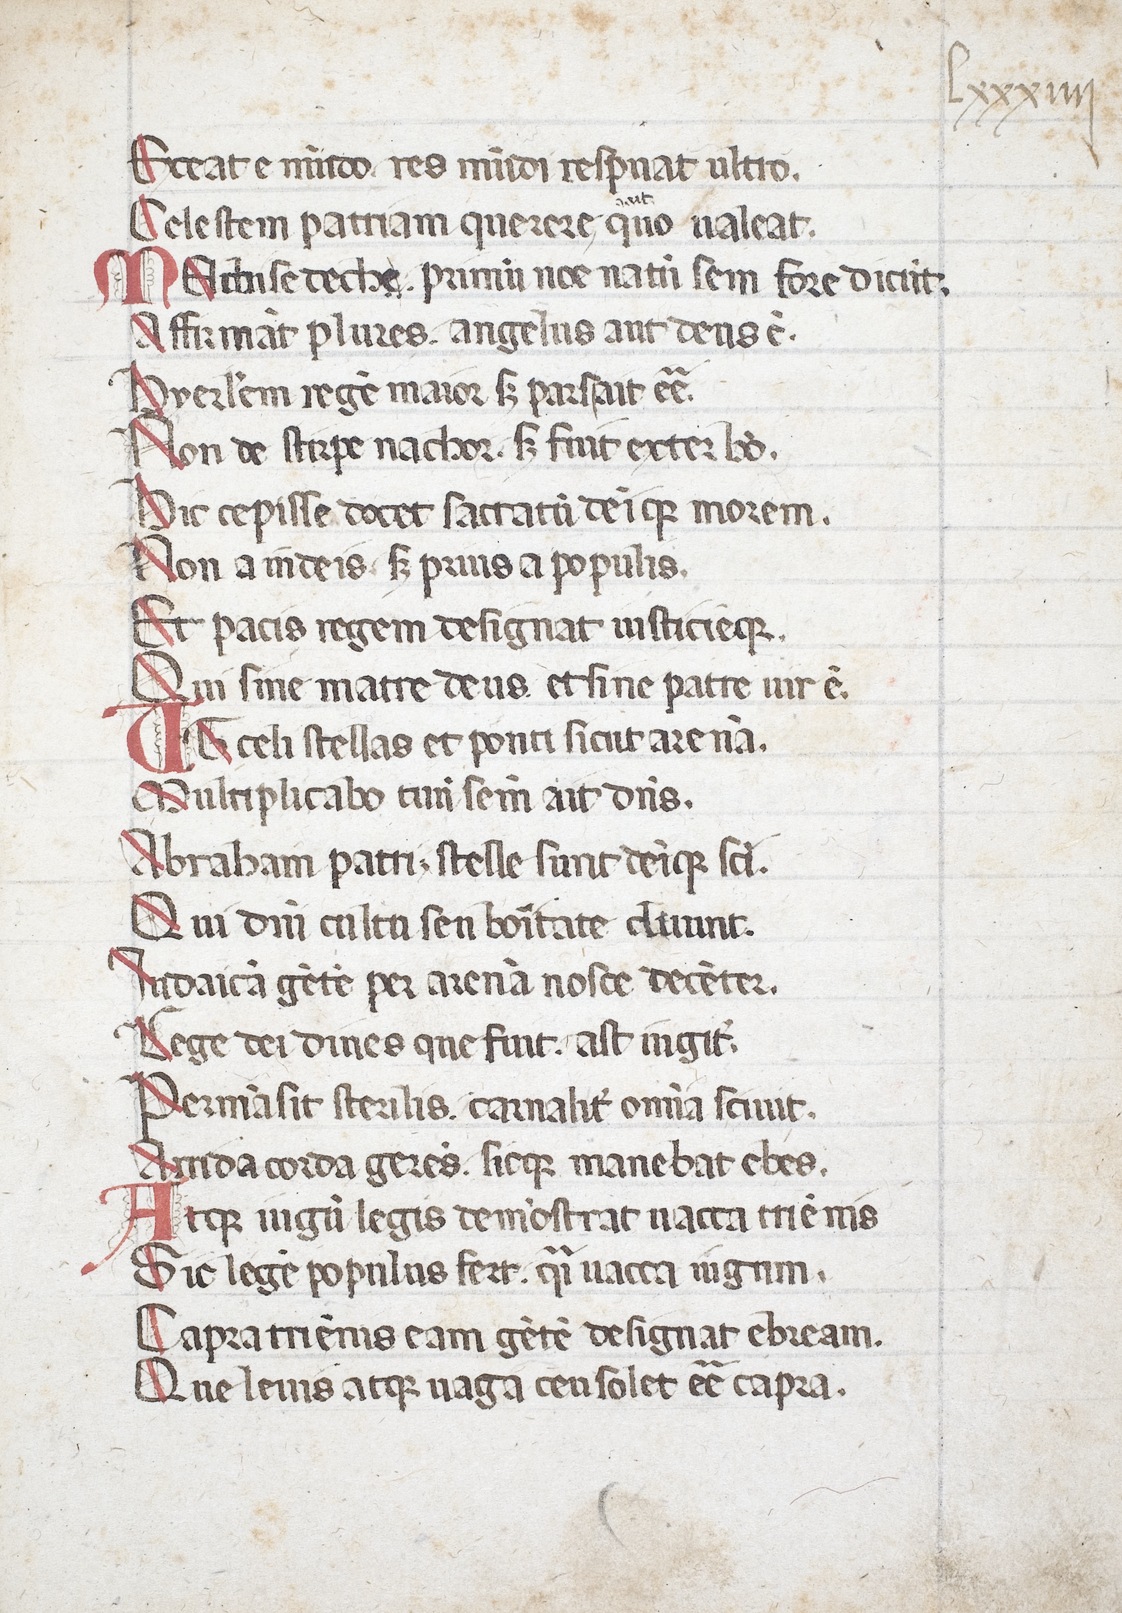 Lxxxiiij
Exeat e mūdo. res mūdi respuat ultro.
Celestem patriam querere quo ualeat.
Melchisedech. primū noe natū sem fore dicūt.
Affirmāt plures. angelus aut deus ē.
Hyerl'em regē maior sꝫ pars ait eē.
Non de stirpe nachor. sꝫ fuit exter hō.
Hic cepisse docet sacratū deiq̄ morem.
Non a iudeis. sꝫ prius a populis.
Et pacis regem designat iusticieq̄.
Qui sine matre deus. et sine patre uir ē.
Vt celi stellas et ponti sicut arenā.
Multiplicabo tuū semē ait dn̄s.
Abraham patri. stelle sunt deniq̄ sc̄i.
Qui diuī cultu seu bonitate cluunt.
Iudaicā gētē per arenā nosce decēter.
Lege dei diues que fuit. ast iugit̉.
Permāsit sterilis. carnalit̉ om̄ia sciuit.
Arida corda gerēs. sicq̄ manebat ebes.
Atq̄ iugū legis demōstrat uacca triēnis
Sic legē populus fert. q̄si uacca iugum.
Capra triēnis eam gētē designat ebream.
Que leuis atq̄ uaga ceu solet eē capra.